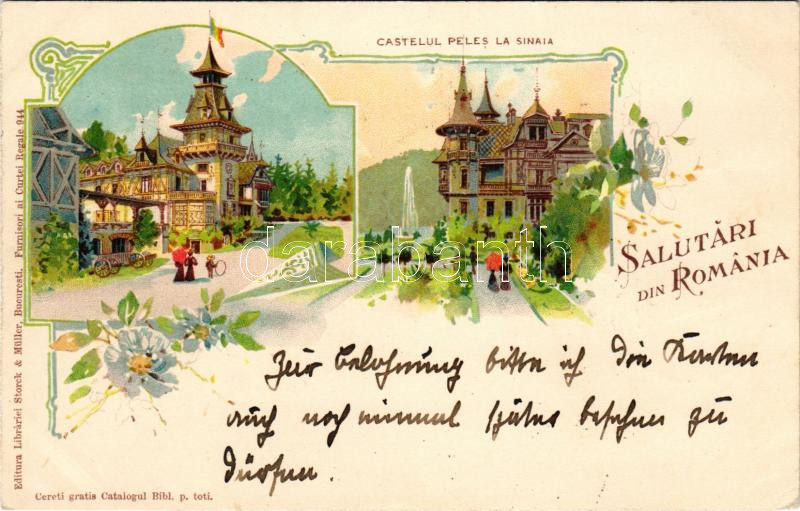 CASTELUL PELES LA SINAIA
SALUTĂRI
DIN ROMÂNIA
darabanth
Zur Belohnung bitte ich die Karten
auch noch einmal später besehen zu
dürfen.
Editura Librăriei Storck & Müller, Bucuresti. Furnisori ai Curtei Regale 944
Cereti gratis Catalogul Bibl. p. toti.